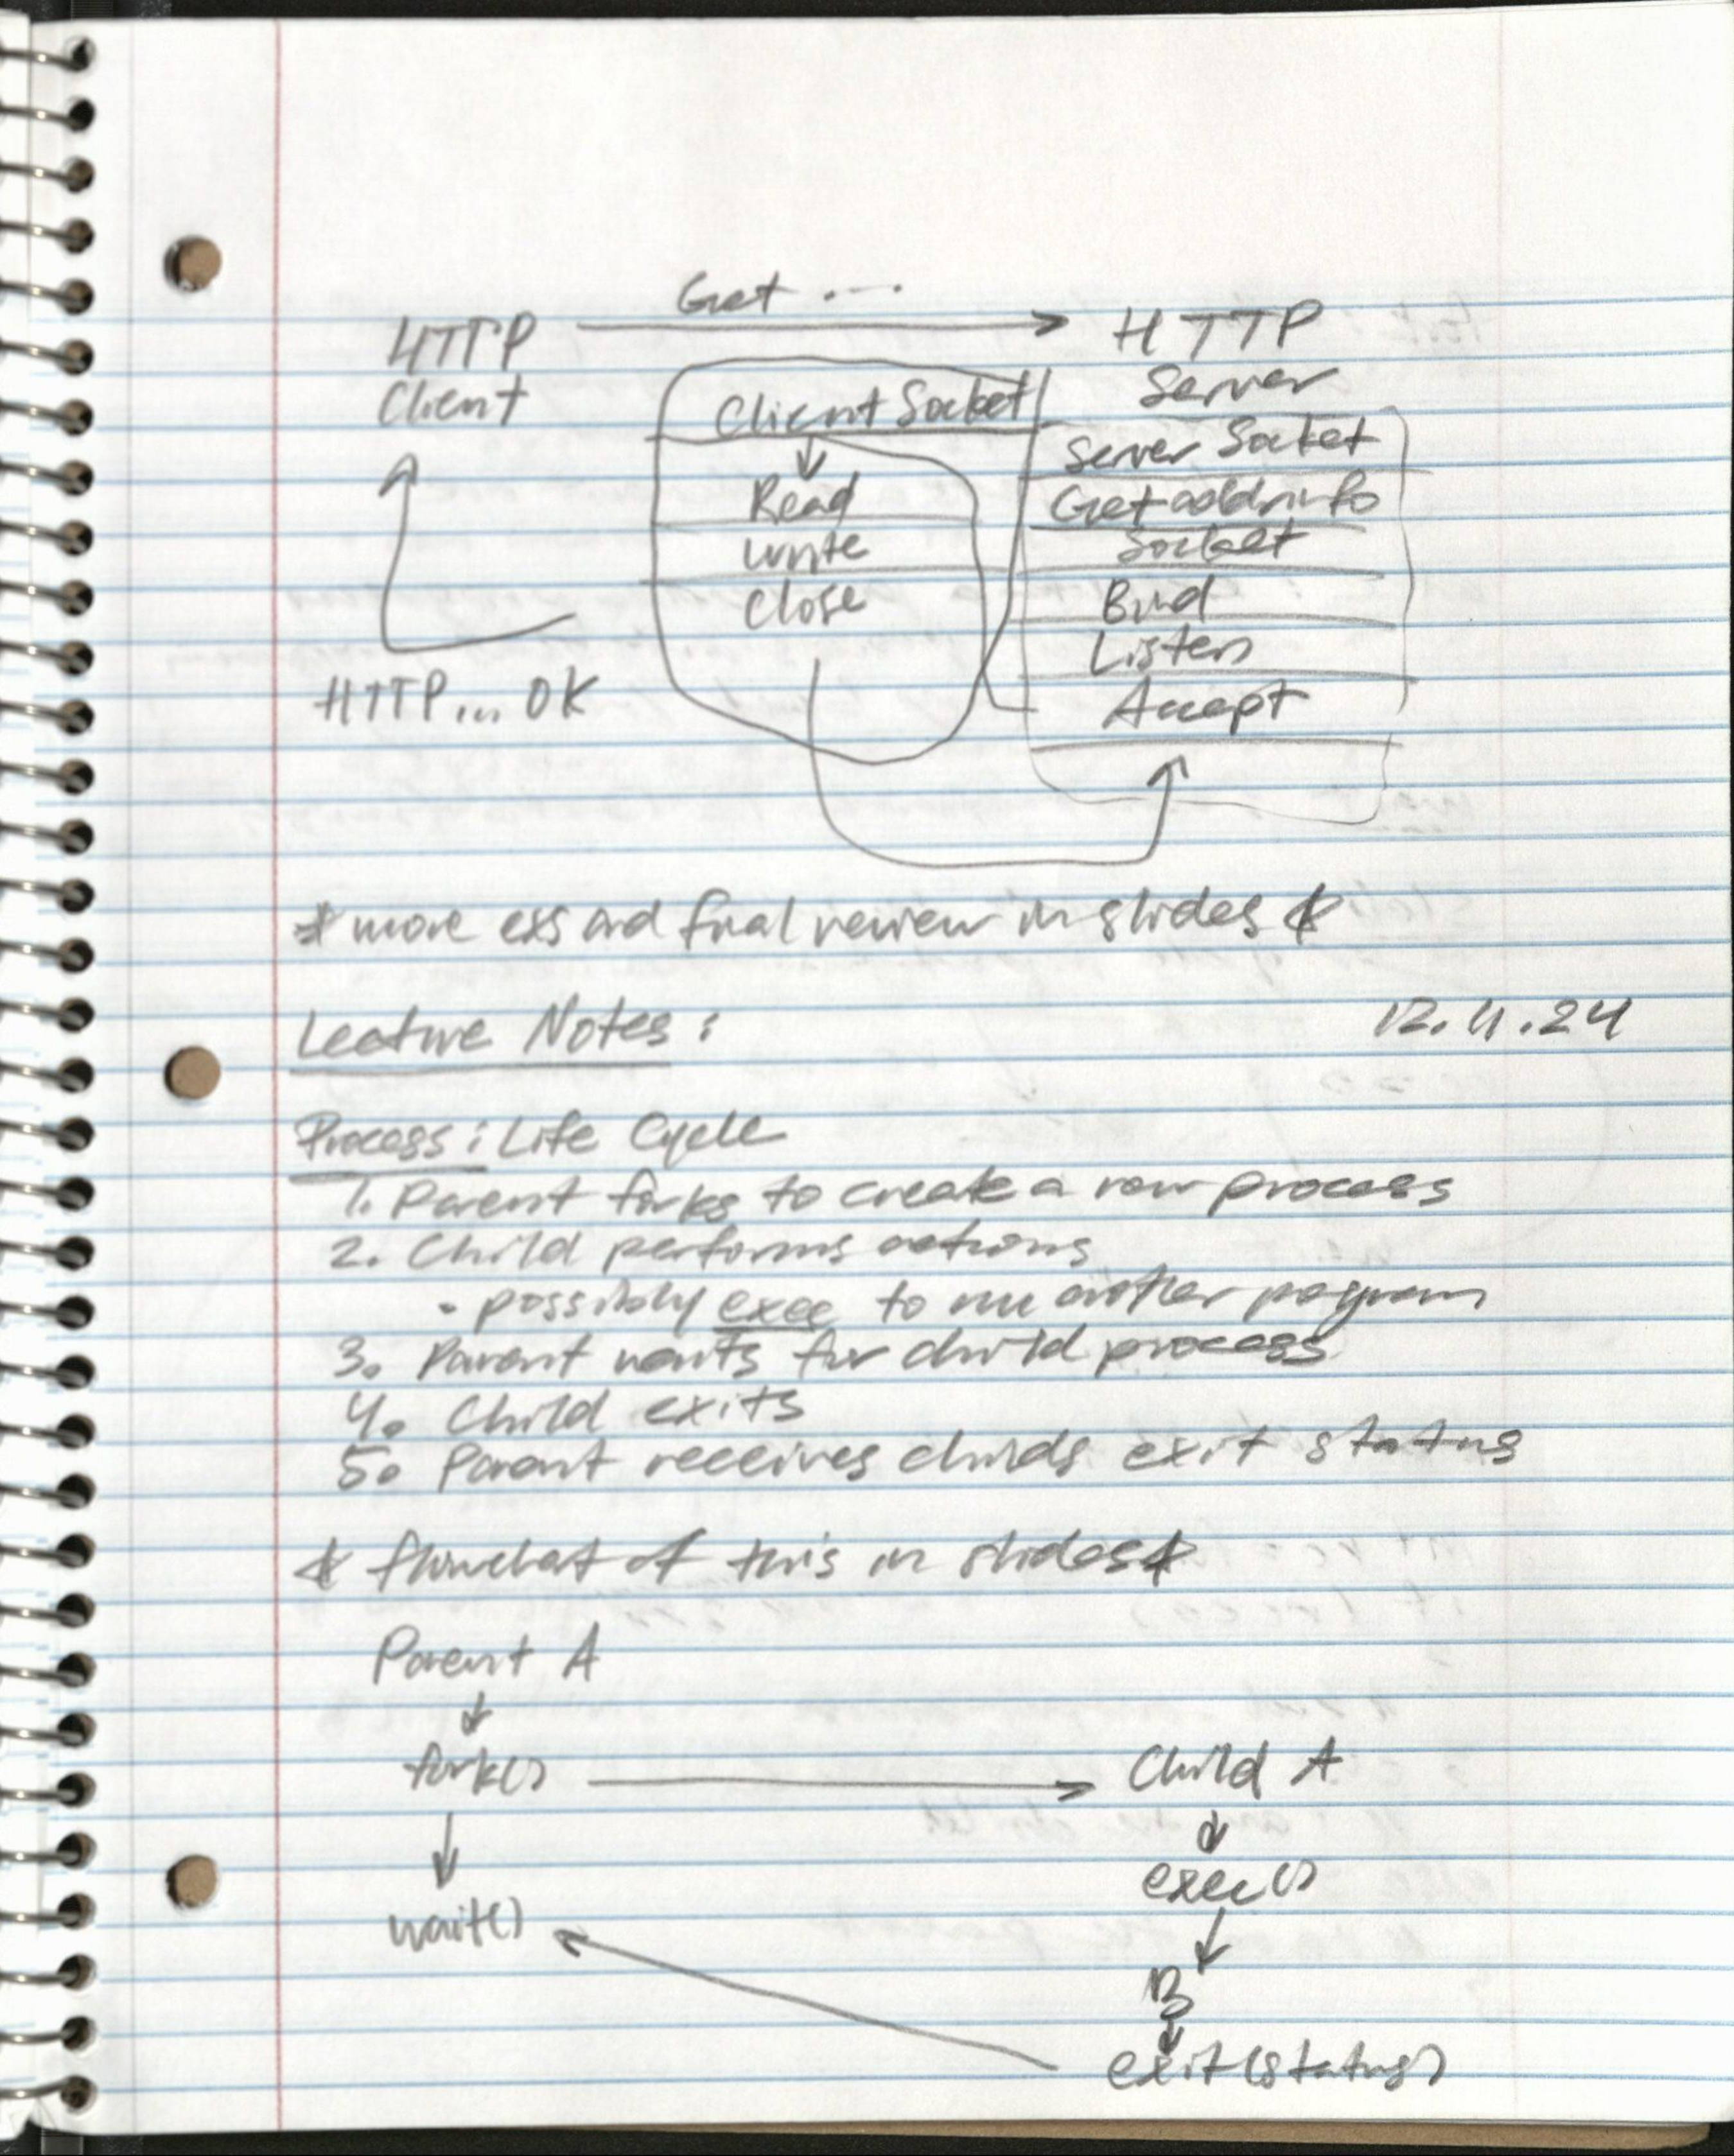 Get ...
HTTP
Client
HTTP
Server
Client Socket
Read
write
Close
Server Socket
Getaddrinfo
Socket
Bind
Listen
Accept
HTTP... OK
* more exs and final review in slides *
Lecture Notes:
12.11.24
Process: Life Cycle
1. Parent forks to create a new process
2. Child performs actions
• possibly exec to run another program
3. Parent waits for child process
4. Child exits
5. Parent receives childs exit status
* flowchart of this in slides *
Parent A
fork()
Child A
exec()
wait()
B
exit(status)